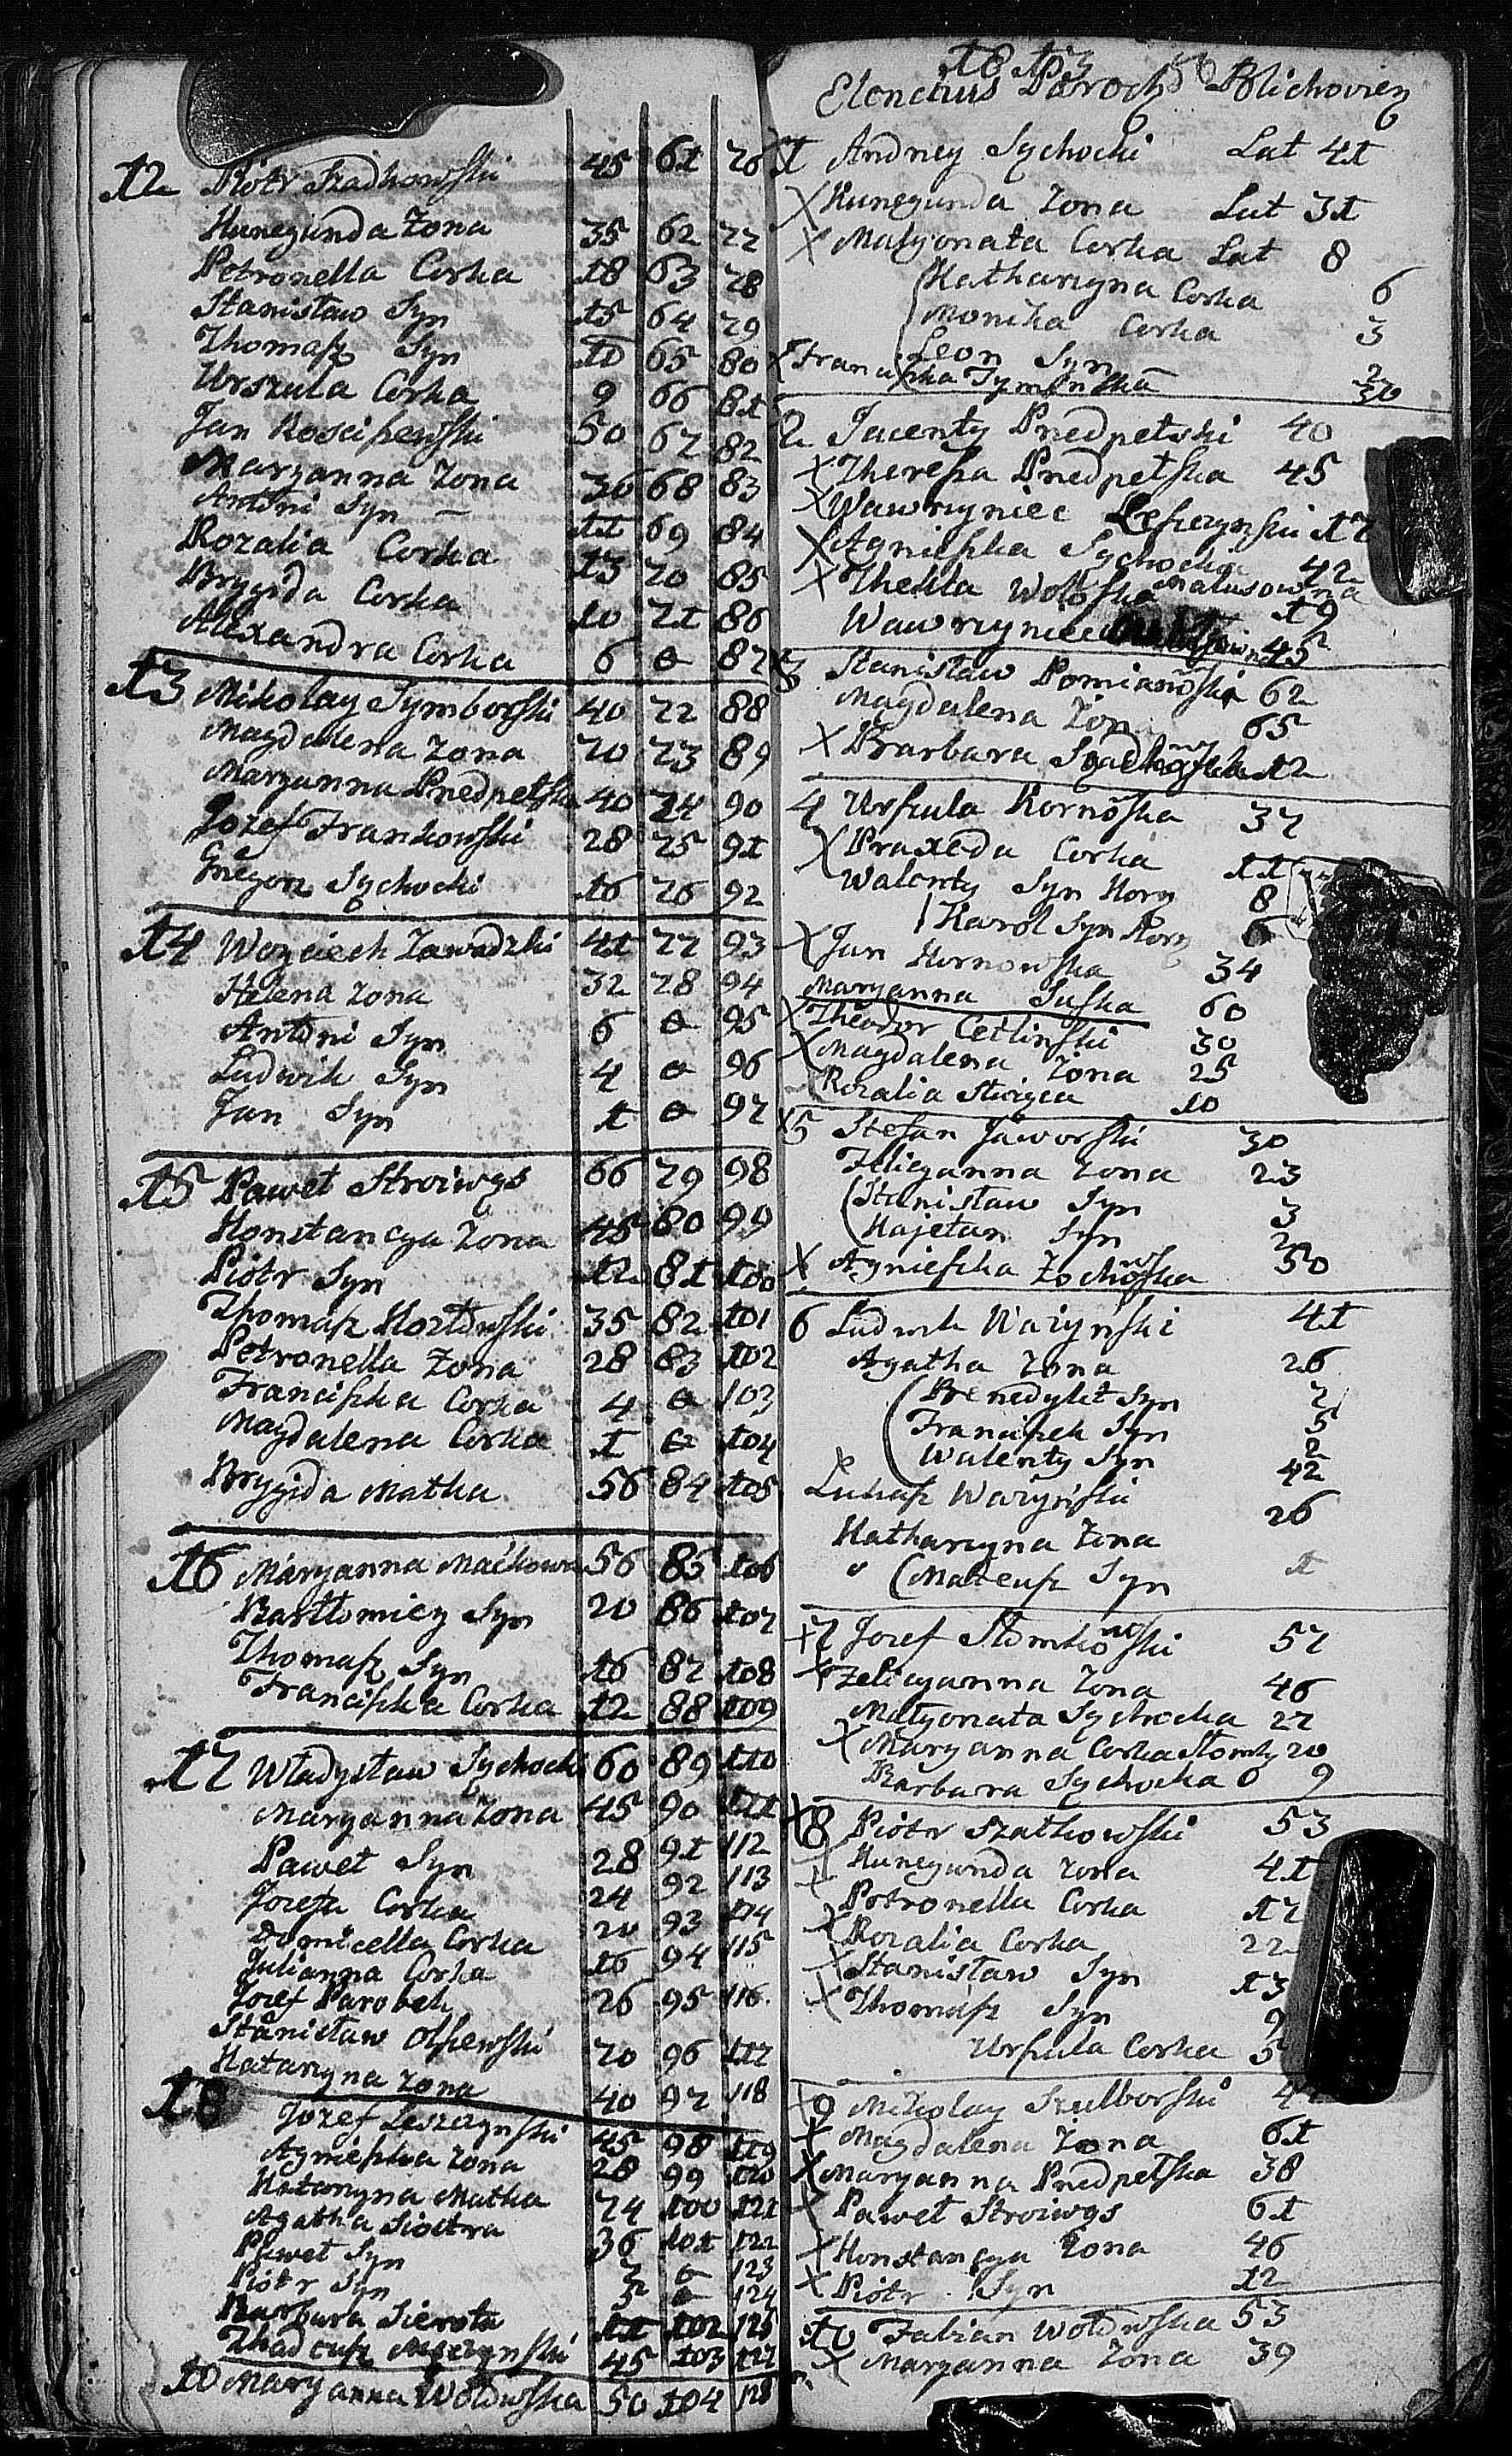 12 Piotr Szadkowski 45 61 76
Kunegunda Zona 35 62 77
Petronella Corka 18 63 78
Stanisław Syn 15 64 79
Thomasz Syn 10 65 80
Urszula Corka 9 66 81
Jan Kosciszewski 50 67 82
Maryanna Zona 36 68 83
Antoni Syn — 11 69 84
Rozalia Corka 13 70 85
Brygida Corka 10 71 86
Alexandra Corka 6 0 87
13 Mikolay Symborski 40 72 88
Magdalena Zona 70 73 89
Maryanna Przedpełska 40 74 90
Jozef Frankowski 28 75 91
Grzegorz Sychocki 16 76 92
14 Woyciech Zawadzki 41 77 93
Helena Zona 32 78 94
Antoni Syn 6 0 95
Ludwik Syn 4 0 96
Jan Syn 1 0 97
15 Paweł Stroiwąs 66 79 98
Konstancya Zona 45 80 99
Piotr Syn 12 81 100
Thomasz Kozłowski 35 82 101
Petronella Zona 28 83 102
Franciszka Corka 4 0 103
Magdalena Corka 1 0 104
Brygida Matka 56 84 105
16 Maryanna Maćkowa 56 85 106
Bartłomiey Syn 20 86 107
Thomasz Syn 16 87 108
Franciszka Corka 12 88 109
17 Władysław Sychocki 60 89 110
Maryanna Zona 45 90 111
Paweł Syn 28 91 112
Jozefa Corka 24 92 113
Domicella Corka 20 93 114
Julianna Corka 16 94 115
Jozef Parobek 26 95 116
Stanisław Olszewski 70 96 117
Katarzyna Zona 40 97 118
18 Jozef Leszczynski 45 98 119
Agnieszka Zona 28 99 120
Katarzyna Matka 74 100 121
Agatha Siostra 36 101 122
Paweł Syn 7 0 123
Piotr Syn 3 0 124
Barbara Sierota 11 102 125
Thadeusz Moczynski 45 103 127
10 Maryanna Wołowska 50 104 128
1813
Elenchus Paroch Blichovien
1 Andrzey Sychocki Lat 41
X Kunegunda Zona Lat 31
X Małgorzata Corka Lat 8
Katharzyna Corka 6
Monika Corka 3
Leon Syn 2
X Franciszka Tyminska 30
2 Jacenty Przedpełski 40
X Theressa Przedpełska 45
X Wawrzyniec Leszczynski 17
X Agnieszka Sychocka 42
X Thekla Wolska 19
Wawrzyniec 45
3 Stanisław Pomianoski 62
Magdalena Zona 65
X Barbara 12
4 Urszula Kornoska 37
X Praxeda Corka 11
Walenty Syn Korn 8
Karol Syn Korn 6
X Jan Kornowska 34
Maryanna Suska 60
X Theodor Cetlinski 30
X Magdalena Zona 25
Rozalia 10
X5 Stefan Jaworski 30
Felicyanna Zona 23
Stanisław Syn 3
Kajetan Syn 2
X Agnieszka Zochowska 50
6 Ludwik Warzynski 41
Agatha Zona 26
Benedykt Syn 7
Franciszek Syn 5
Walenty Syn 2
Lukasz Warzynski 42
Katharzyna Zona 26
Mateusz Syn 1
X7 Jozef Słomkowski 57
X Felicyanna Zona 46
Małgorzata Sychocka 27
X Maryanna Corka Słomk 20
Barbara Sychocka 0 9
X8 Piotr Szatkowski 53
X Kunegunda Zona 41
Petronella Corka 17
X Rozalia Corka 22
X Stanisław Syn 13
X Thomasz Syn 9
Urszula Corka 5
X9 Mikolay Szulborski
X Magdalena Zona 61
X Maryanna Przedpełska 38
X Paweł Stroiwąs 61
X Konstancya Zona 46
X Piotr Syn 12
10 Fabian Wołowska 53
X Maryanna Zona 39